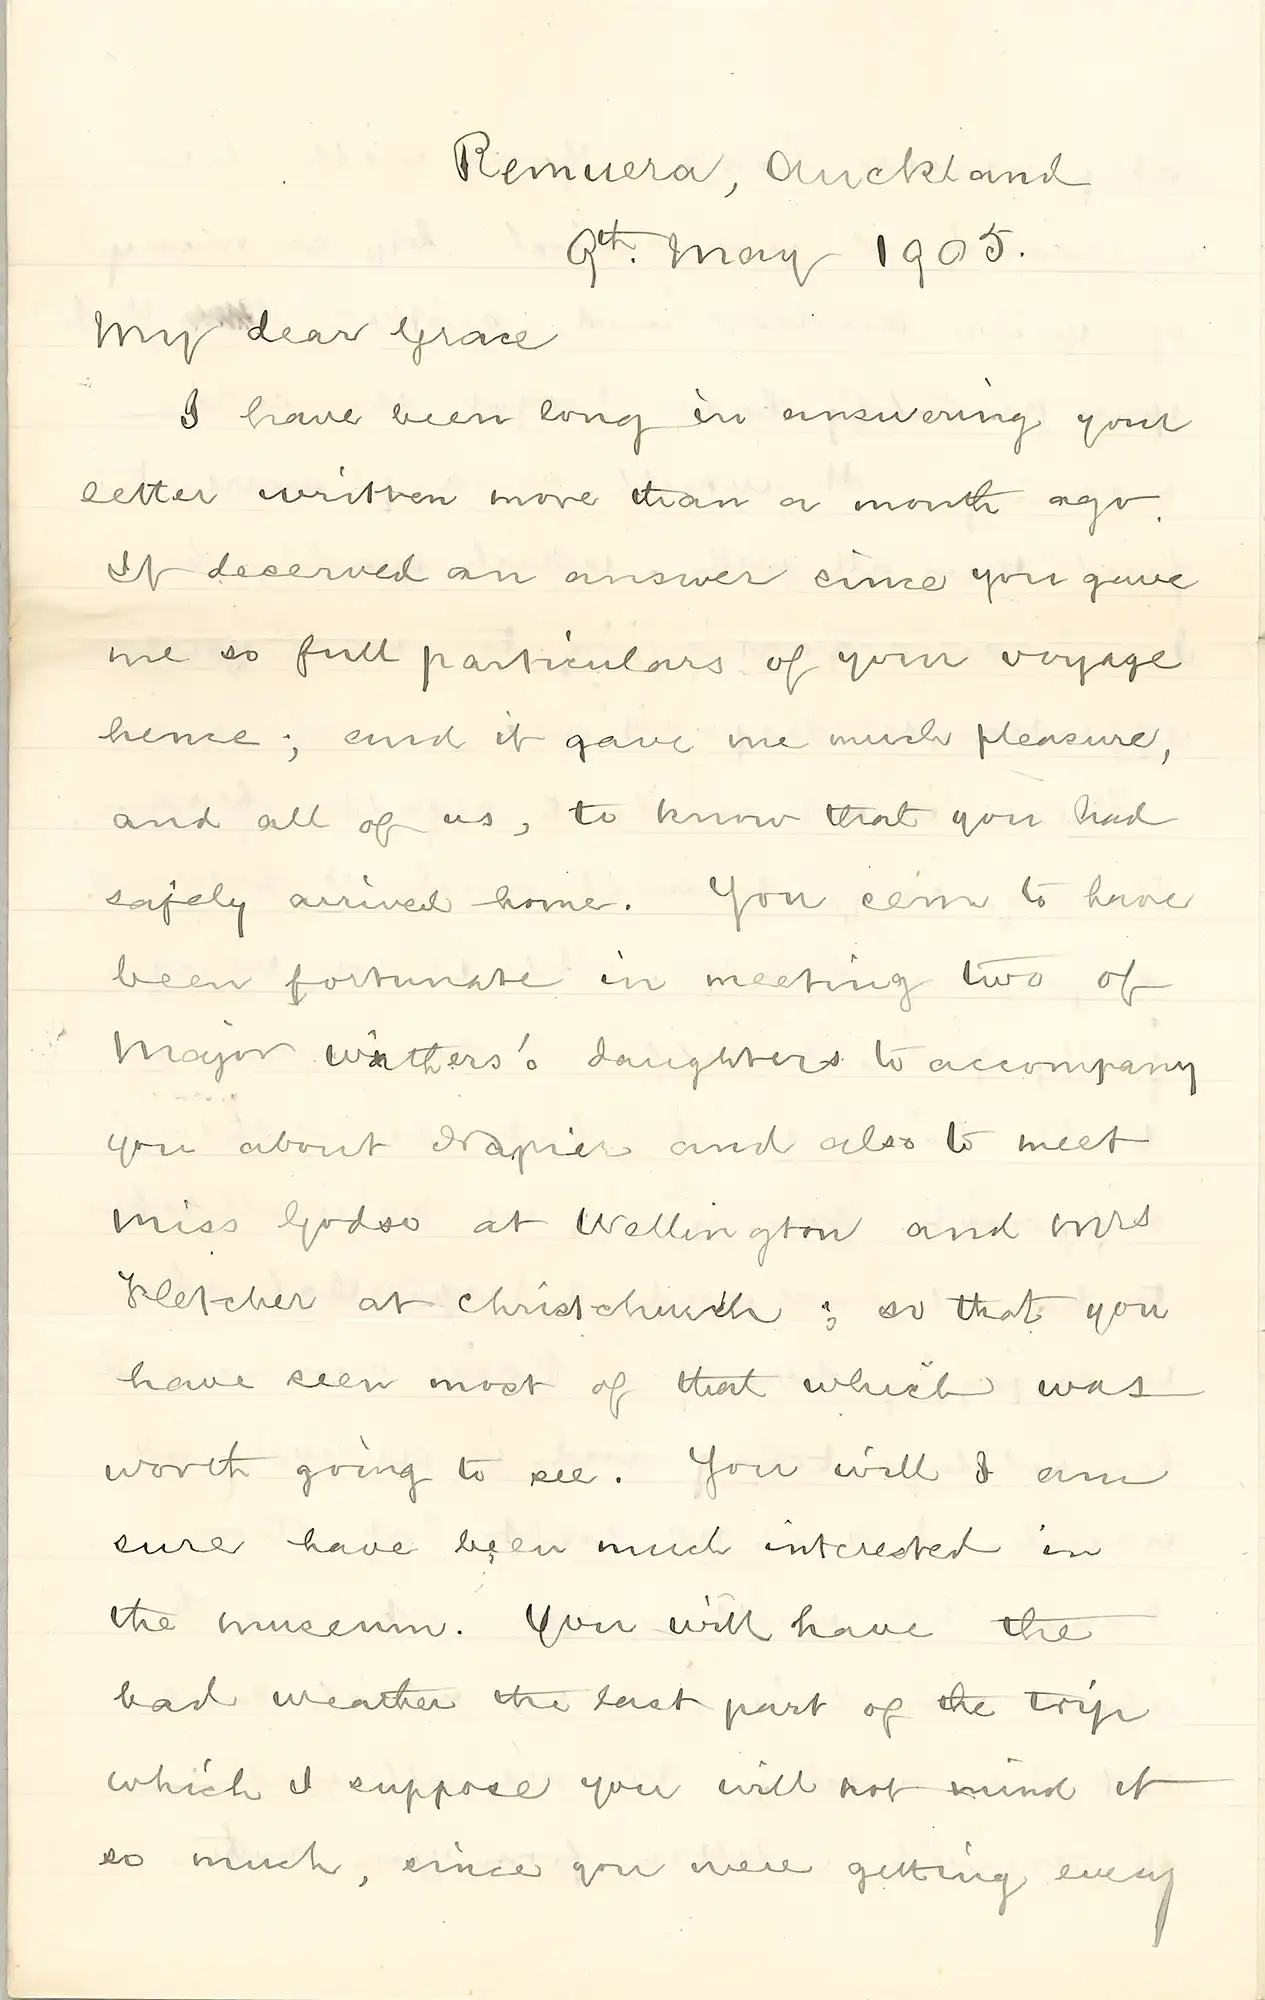 Remuera, Auckland
9th. May 1905.
My dear Grace
I have been long in answering your
letter written more than a month ago.
It deserved an answer since you gave
me so full particulars of your voyage
hence; and it gave me much pleasure,
and all of us, to know that you had
safely arrived home. You seem to have
been fortunate in meeting two of
Major Withers's daughters to accompany
you about Napier and also to meet
Miss Godso at Wellington and Mrs
Fletcher at Christchurch; so that you
have seen most of that which was
worth going to see. You will I am
sure have been much interested in
the museum. You will have the
bad weather the last part of the trip
which I suppose you will not mind it
so much, since you were getting every